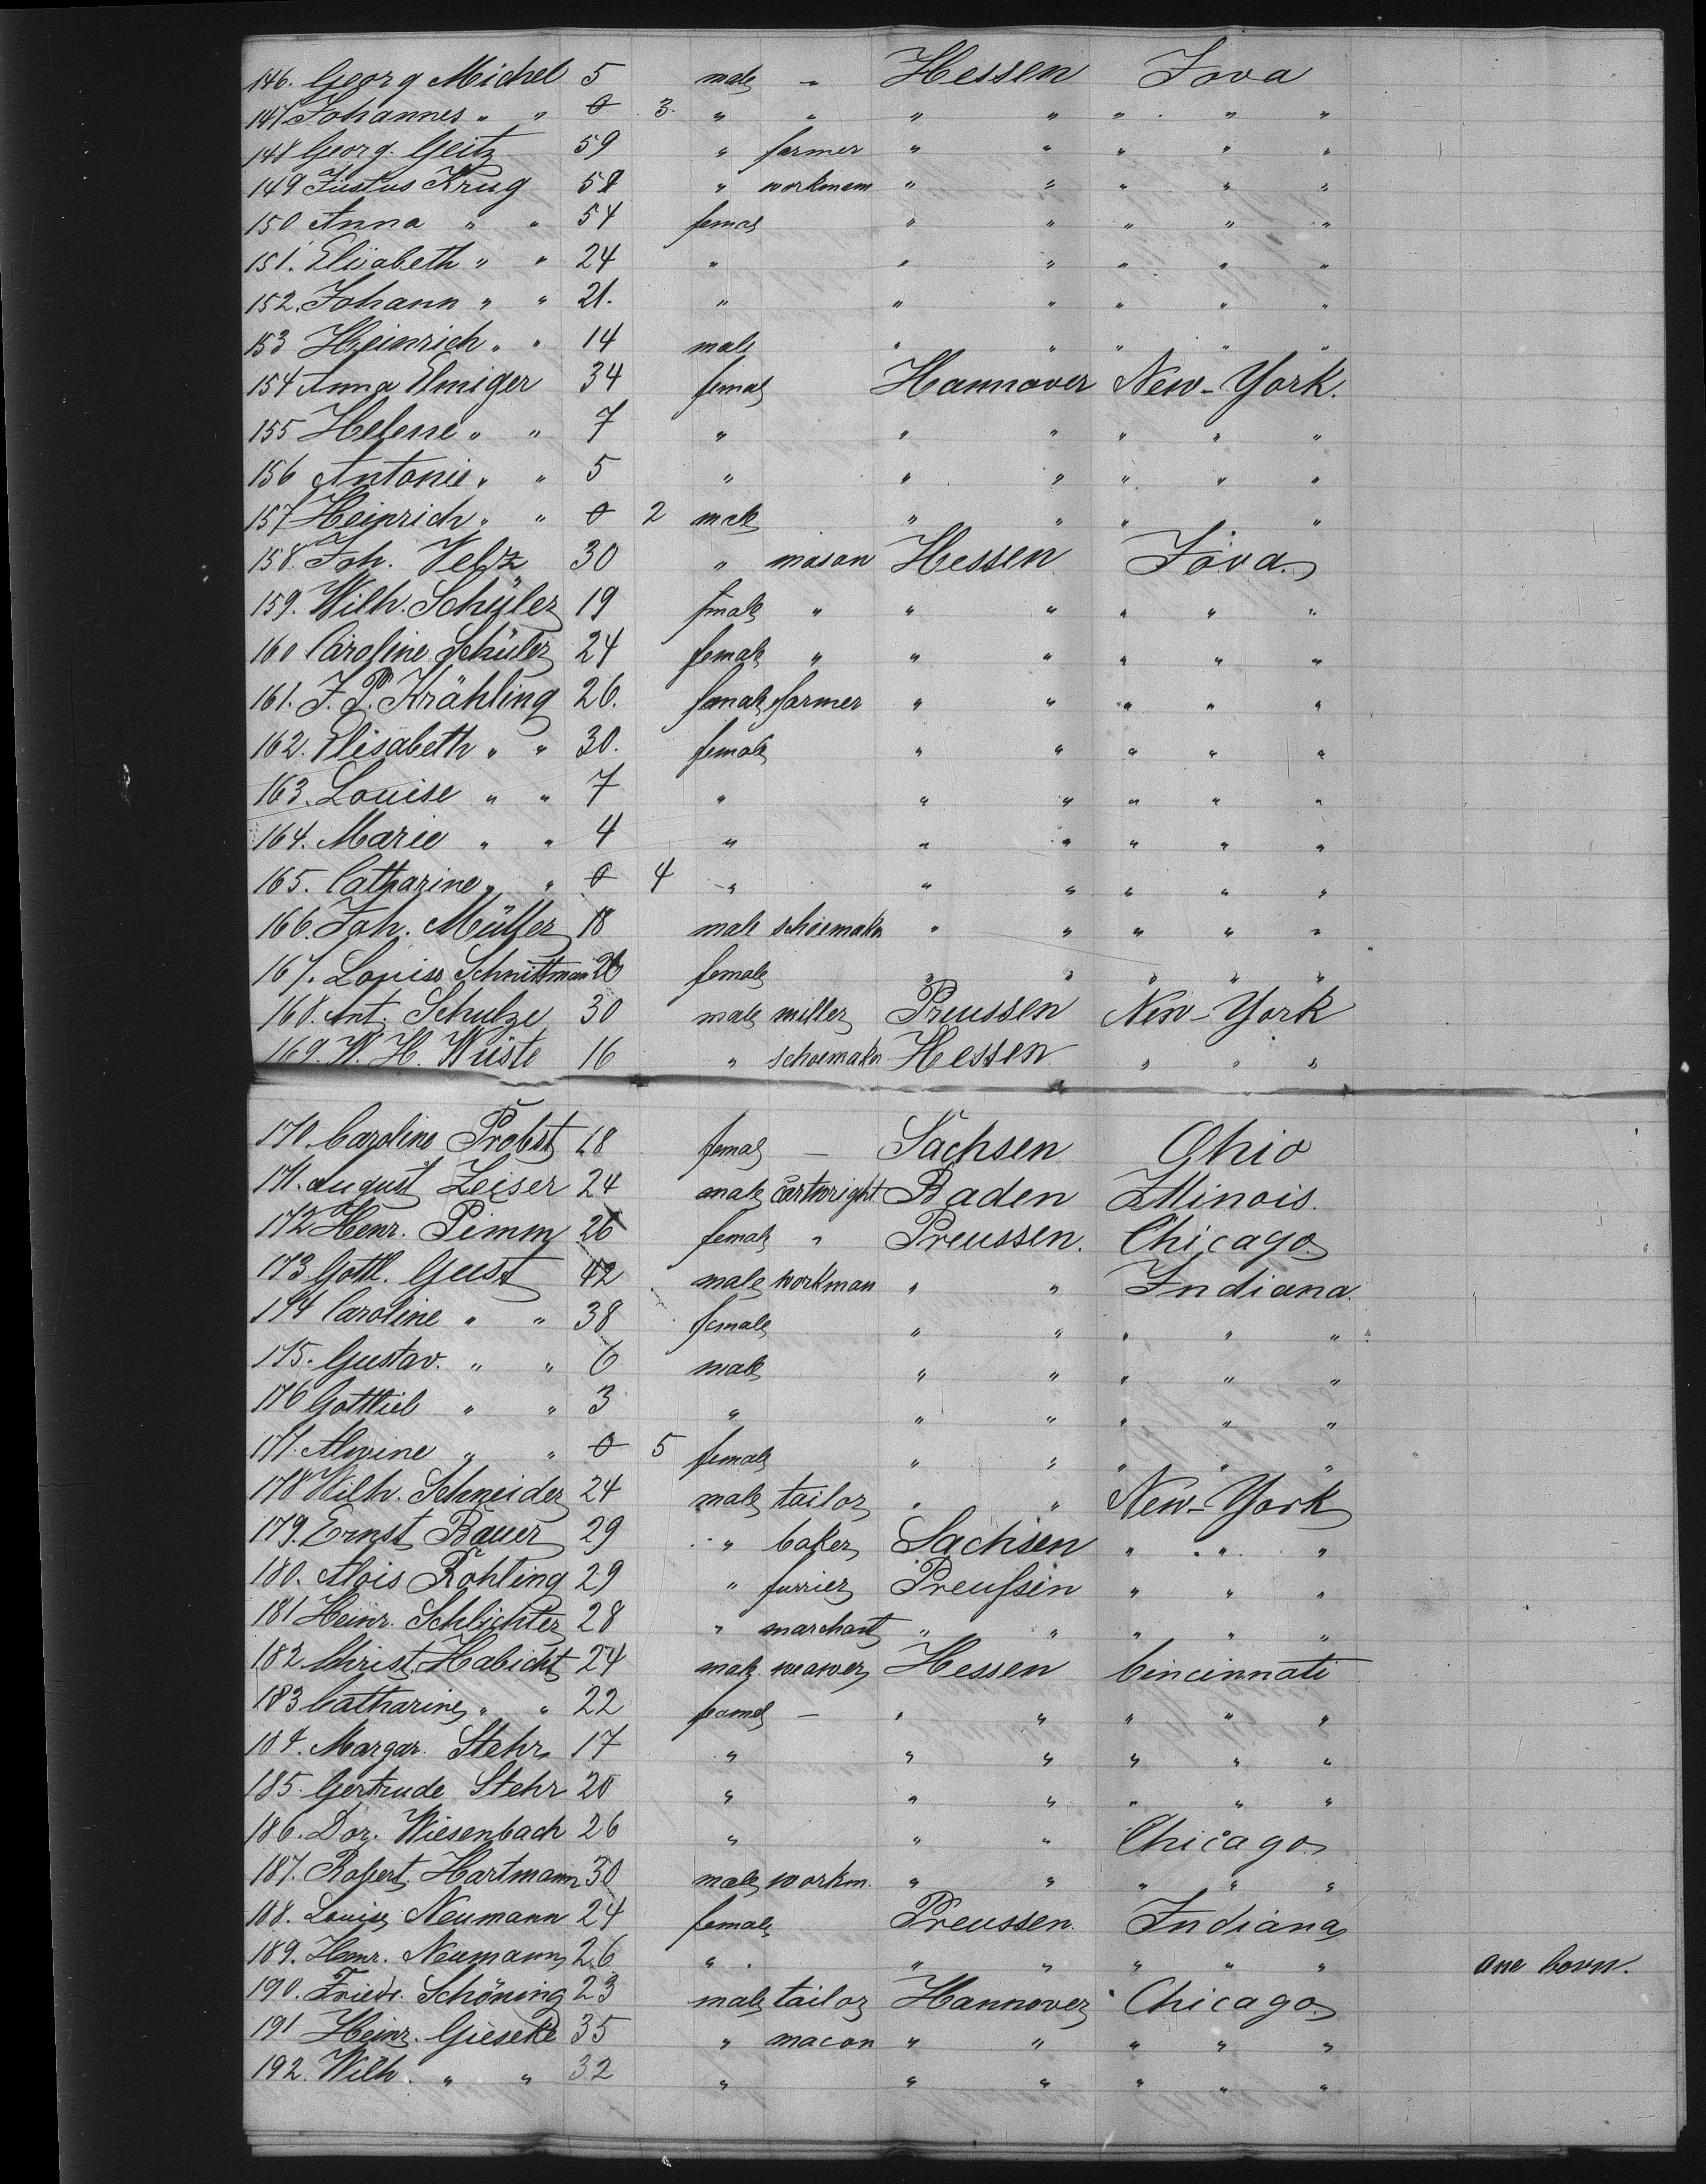 146. Georg Michel 5 male " Hessen Iova
147 Johannes " " 0 3. " " " " " " "
148 Georg. Geitz 59 " farmer " " " " "
149 Justus Krug " workmann " " " " "
150 Anna " " 54 femal " " " " "
151. Elisabeth " " 24 " " " " " "
152. Johann " " 21. " " " " " "
153 Heinrich " " 14 male " " " " "
154 Anna Elmiger 34 femal Hannover New-York.
155 Helene " " 7 " " " " " "
156 Antonie " " 5 " " " " " "
157 Heinrich " " 0 2 male " " " "
158. Joh. Velz 30 " mason Hessen Iova
159. Wilh. Schüler 19 male " " " " " "
160 Caroline Schüler 24 female " " " " " "
161. J. P. Krähling 26. male farmer " " " " "
162. Elisabeth " " 30. female " " " " "
163. Louise " " 7 " " " " " "
164. Marie " " 4 " " " " " "
165. Catharine " " 0 4 " " " " " "
166. Joh. Müller 18 male schoemaker " " " " "
167. Louise Schnittman female " " " " "
168. Ant. Schulze 30 male miller Preussen New-York
169. W. H. Wüste 16 " schoemaker Hessen " " "
170. Caroline Probst 18 femal — Sachsen Ohio
171. August Zeiser 24 male cartwright Baden Illinois.
172 Henr. Pimm 26 female " Preussen. Chicago
173 Gottl. Geist 42 male workman " " Indiana
174 Caroline " " 38 female " " " " "
175. Gustav. " " 6 male " " " " "
176 Gottlieb " " 3 " " " " " "
177. Alwine " " 0 5 female " " " " "
178 Wilh. Schneider 24 male tailor " " New-York
179. Ernst Bauer 29 " baker Sachsen " " "
180. Alois Röhling 29 " furrier Preußin " " "
181 Heinr. Schlichter 28 " marchant " " " " "
182 Christ. Habicht 24 male weawer Hessen Cincinnati
183 Catharine " " 22 feamel — " " " " "
184. Margar. Stehr 17 " " " " " "
185. Gertrude Stehr 20 " " " " " "
186. Dor. Wiesenbach 26 " " " Chicago
187. Robert Hartmann 30 male workm. " " " " "
188. Louise Neumann 24 female Preussen. Indiana
189. Henr. Neumann 26 " " " " " " one born.
190. Friedr. Schöning 23 male tailor Hannover Chicago
191 Heinr. Gieseke 35 " macon " " " " "
192. Wilh. " " 32 " " " " " "